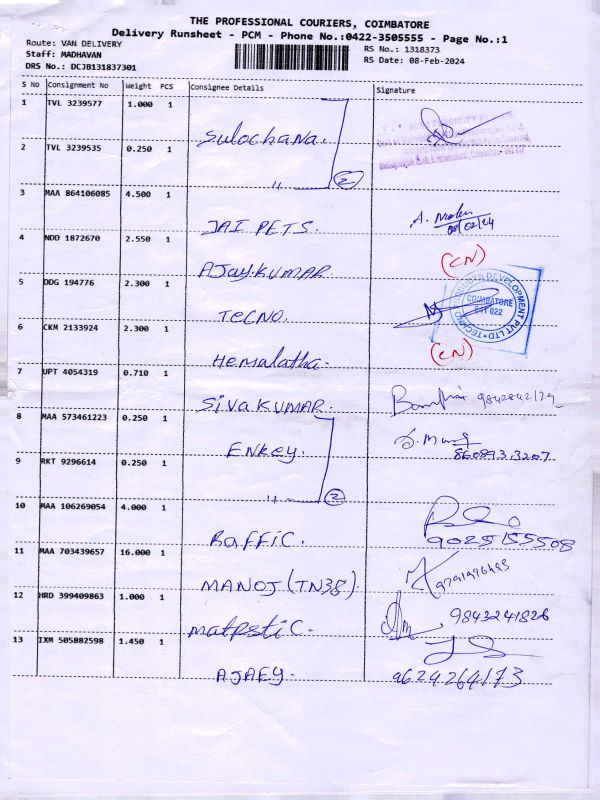 THE PROFESSIONAL COURIERS, COIMBATORE
Delivery Runsheet - PCM - Phone No.:0422-3505555 - Page No.:1
Route: VAN DELIVERY
RS No.: 1318373
Staff: MADHAVAN
RS Date: 08-Feb-2024
DRS No.: DCJB131837301
S No Consignment No Weight PCS Consignee Details Signature
1 TVL 3239577 1.000 1
Sulochana.
2 TVL 3239535 0.250 1
" 2
3 MAA 864106085 4.500 1
JAI PETS. 08/02/24
4 NDD 1872670 2.550 1
AJay.KUMAR (CN)
5 DDG 194776 2.300 1
TECNO. COIMBATORE
6 CKM 2133924 2.300 1
Hemalatha. (CN)
7 UPT 4054319 0.710 1
SIVAKUMAR.
8 MAA 573461223 0.250 1
ENKEY. 8608933207
9 RKT 9296614 0.250 1
" 2
10 MAA 106269054 4.000 1
RAFFIC. 9025155508
11 MAA 703439657 16.000 1
MANOJ (TN38)
12 HRD 399409863 1.000 1
9843241826
13 IXM 505882598 1.450 1
AJAEY. 9629264173